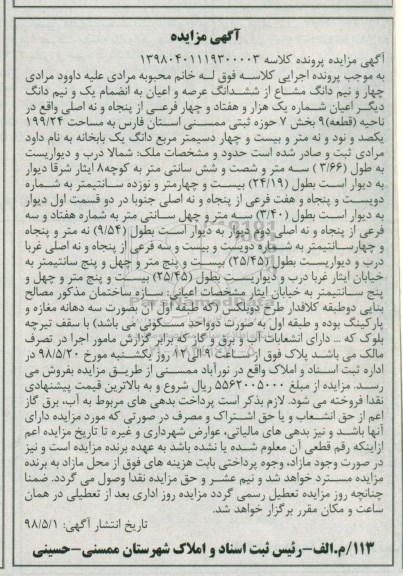 آگهی مزایده
آگهی مزایده پرونده کلاسه ۱۳۹۸۰۴۰۱۱۱۱۹۳۰۰۰۰۳
به موجب پرونده اجرایی کلاسه فوق له خانم محبوبه مرادی علیه داوود مرادی
چهار و نیم دانگ مشاع از ششدانگ عرصه و اعیان به انضمام یک و نیم دانگ
دیگر اعیان شماره یک هزار و هفتاد و چهار فرعی از پنجاه و نه اصلی واقع در
ناحیه (قطعه)۹ بخش ۷ حوزه ثبتی ممسنی استان فارس به مساحت ۱۹۹/۲۴
یکصد و نود و نه متر و بیست و چهار دسیمتر مربع دانگ یک بابخانه به نام داود
مرادی ثبت و صادر شده است حدود و مشخصات ملک: شمالا درب و دیواریست
به طول (۳/۶۶) سه متر و شصت و شش سانتی متر به کوچه۸ ایثار شرقا دیوار
به دیوار است بطول (۲۴/۱۹) بیست و چهارمتر و نوزده سانتیمتر به شماره
دویست و پنجاه و هفت فرعی از پنجاه و نه اصلی جنوبا در دو قسمت اول دیوار
به دیوار است بطول (۳/۴۰) سه متر و چهل سانتی متر به شماره هفتاد و سه
فرعی از پنجاه و نه اصلی دوم دیوار به دیوار است بطول (۹/۵۴) نه متر و پنجاه
و چهارسانتیمتر به شماره دویست و بیست و سه فرعی از پنجاه و نه اصلی غربا
درب و دیواریست بطول (۲۵/۴۵) بیست و پنج متر و چهل و پنج سانتیمتر به
خیابان ایثار غربا درب و دیواریست بطول (۲۵/۴۵) بیست و پنج متر و چهل و
پنج سانتیمتر به خیابان ایثار مشخصات اعیانی: سازه ساختمان مذکور مصالح
بنایی دوطبقه کلافدار طرح دوبلکس (که طبقه اول آن بصورت سه دهانه مغازه و
پارکینگ بوده و طبقه اول به صورت دوواحد مسکونی می باشد) با سقف تیرچه
بلوک که ... دارای انشعابات آب و برق و گاز که برابر گزارش مامور اجرا در تصرف
مالک می باشد پلاک فوق از ساعت ۹ الی ۱۲ روز یکشنبه مورخ ۹۸/۵/۲۰ در
اداره ثبت اسناد و املاک واقع در نورآباد ممسنی از طریق مزایده بفروش می
رسد. مزایده از مبلغ ۵۵۶۲۰۰۵۰۰۰ ریال شروع و به بالاترین قیمت پیشنهادی
نقدا فروخته می شود. لازم بذکر است پرداخت بدهی های مربوط به آب، برق گاز
اعم از حق انشعاب و یا حق اشتراک و مصرف در صورتی که مورد مزایده دارای
آنها باشد و نیز بدهی های مالیاتی، عوارض شهرداری و غیره تا تاریخ مزایده اعم
ازاینکه رقم قطعی آن معلوم شده یا نشده باشد به عهده برنده مزایده است و نیز
در صورت وجود مازاد، وجوه پرداختی بابت هزینه های فوق از محل مازاد به برنده
مزایده مسترد خواهد شد و نیم عشر و حق مزایده نقدا وصول می گردد. ضمنا
چنانچه روز مزایده تعطیل رسمی گردد مزایده روز اداری بعد از تعطیلی در همان
ساعت و مکان مقرر برگزار خواهد شد.
تاریخ انتشار آگهی: ۹۸/۵/۱
۱۱۳/م.الف-رئیس ثبت اسناد و املاک شهرستان ممسنی-حسینی